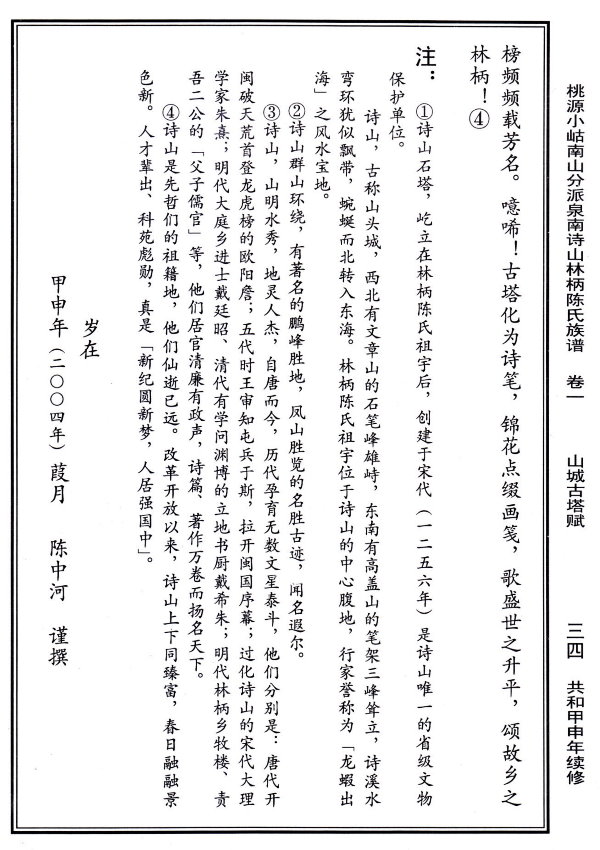 桃源小岵南山分派泉南诗山林柄陈氏族谱 卷一 山城古塔赋 三四 共和甲申年续修
榜频频载芳名。噫唏！古塔化为诗笔，锦花点缀画笺，歌盛世之升平，颂故乡之
林柄！④
注：①诗山石塔，屹立在林柄陈氏祖宇后，创建于宋代（一二五六年）是诗山唯一的省级文物
保护单位。
诗山，古称山头城，西北有文章山的石笔峰雄峙，东南有高盖山的笔架三峰耸立，诗溪水
弯环犹似飘带，蜿蜒而北转入东海。林柄陈氏祖宇位于诗山的中心腹地，行家誉称为「龙虾出
海」之风水宝地。
②诗山群山环绕，有著名的鹏峰胜地，凤山胜览的名胜古迹，闻名遐尔。
③诗山，山明水秀，地灵人杰，自唐而今，历代孕育无数文星泰斗，他们分别是：唐代开
闽破天荒首登龙虎榜的欧阳詹；五代时王审知屯兵于斯，拉开闽国序幕；过化诗山的宋代大理
学家朱熹；明代大庭乡进士戴廷昭、清代有学问渊博的立地书厨戴希朱；明代林柄乡牧楼、责
吾二公的「父子儒官」等，他们居官清廉有政声，诗篇、著作万卷而扬名天下。
④诗山是先哲们的祖籍地，他们仙逝已远。改革开放以来，诗山上下同臻富，春日融融景
色新。人才辈出、科苑彪勋，真是「新纪圆新梦，人居强国中」。
岁在
甲申年（二〇〇四年）葭月 陈中河 谨撰